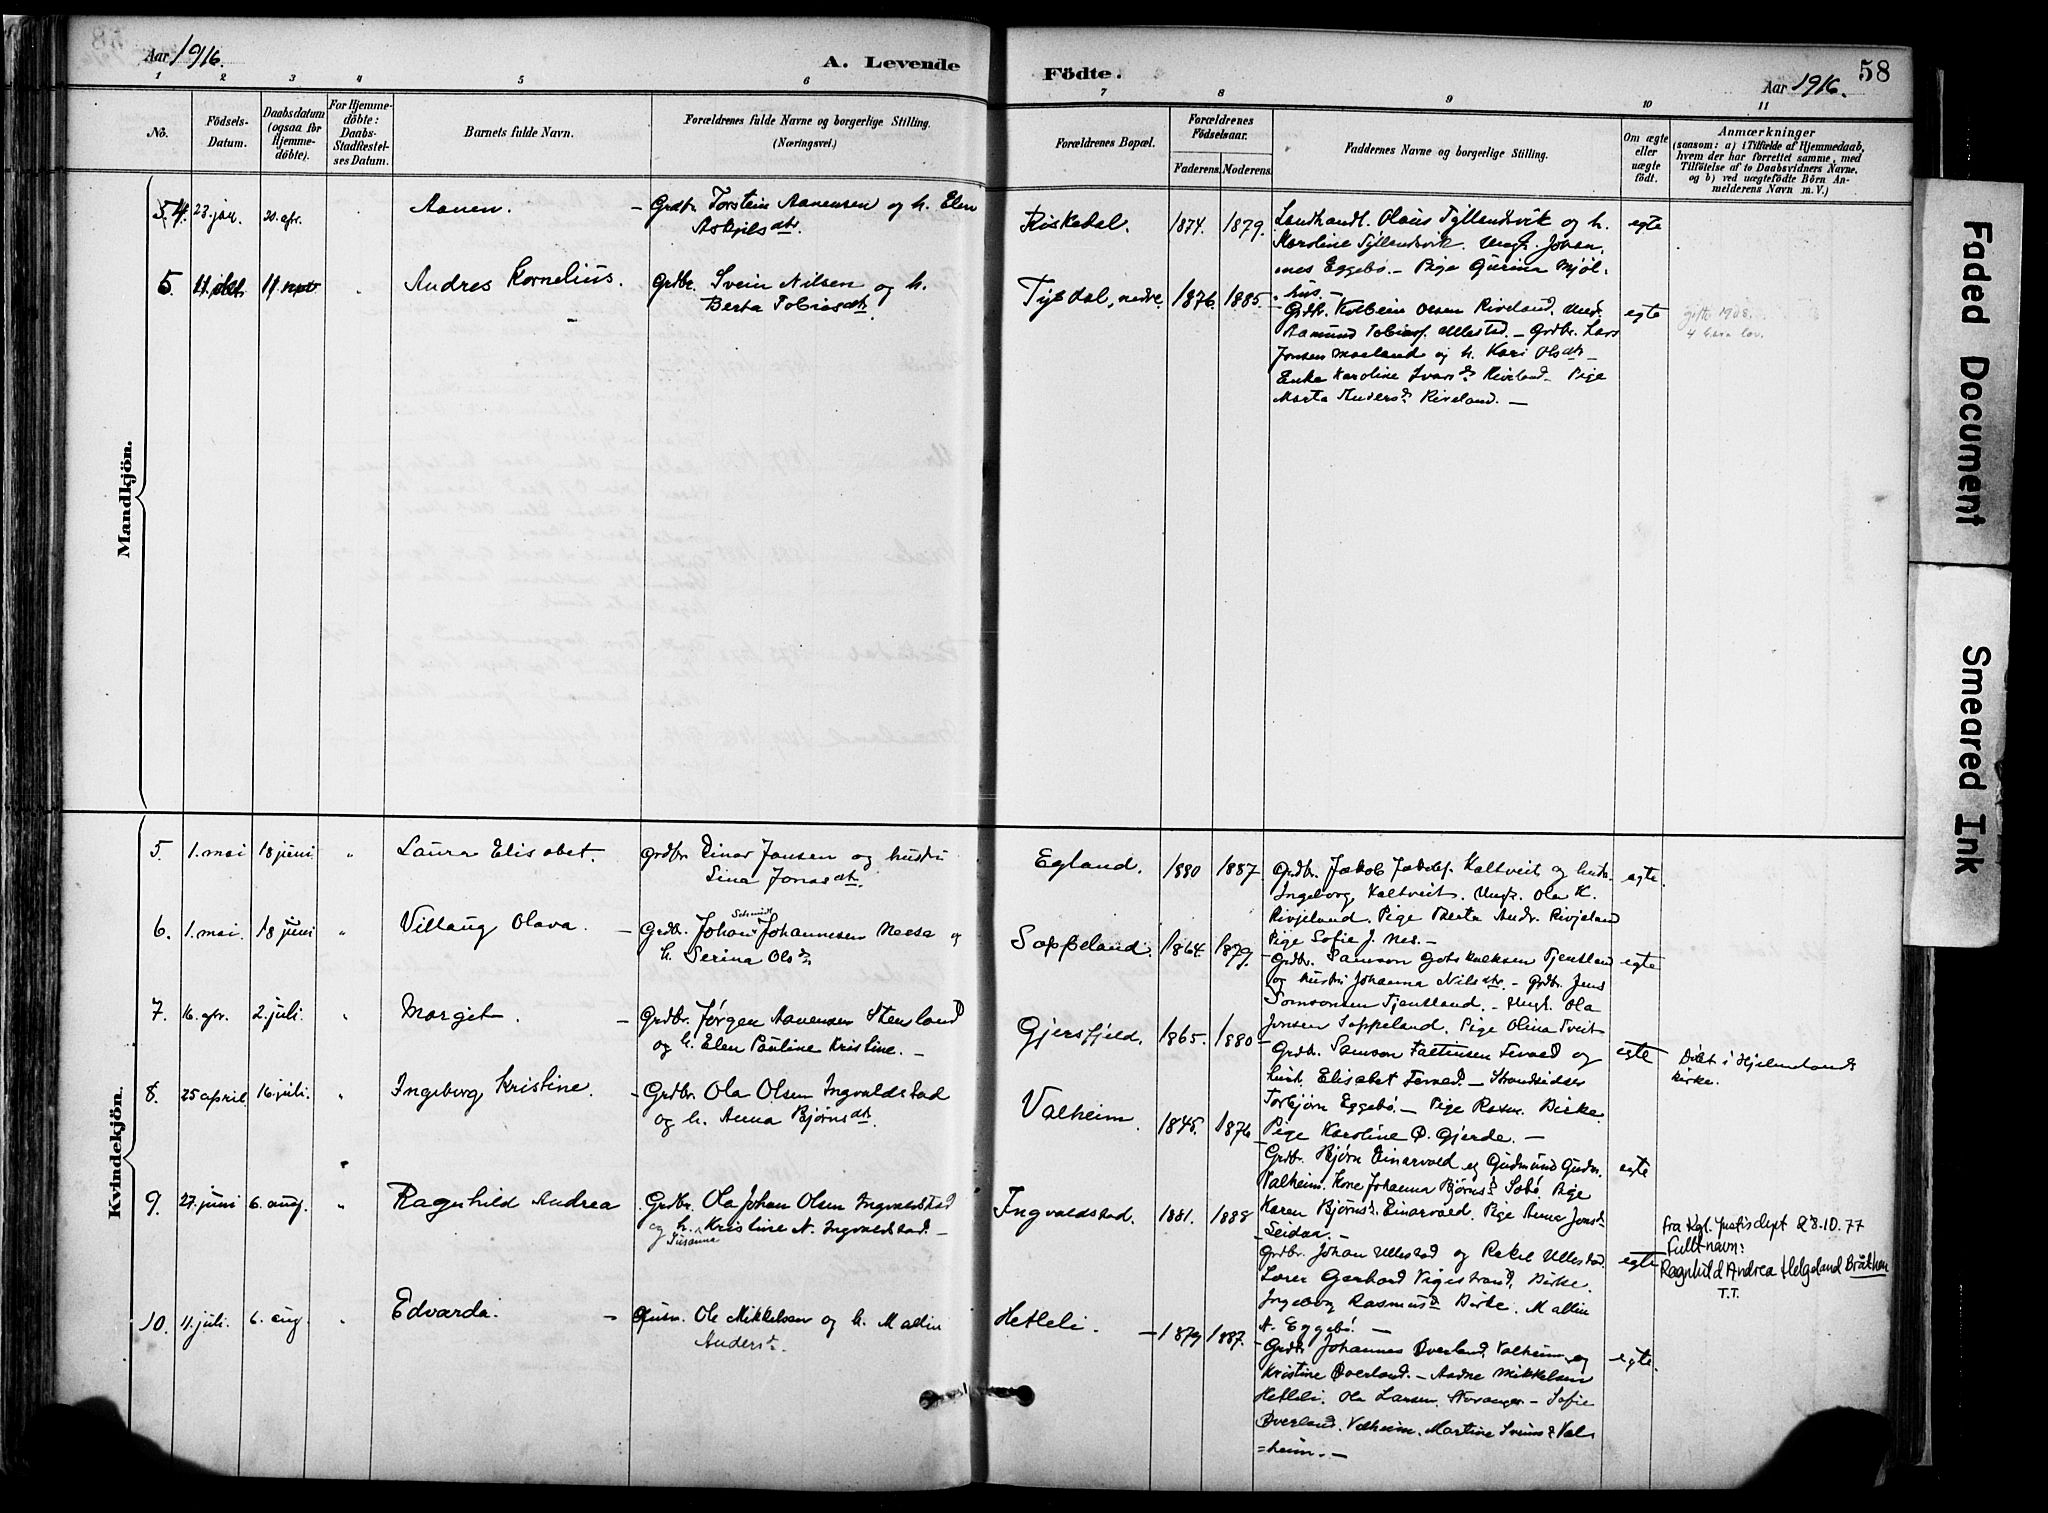 Aar 1916.
A. Levende
Födte.
Aar 1916.
58
1 2 3 4 5 6 7 8 9 10 11
No.
Födsels-
Datum.
Daabsdatum
(ogsaa for
Hjemme-
döbte).
For Hjemme-
döbte:
Daabs-
Stadfæstel-
ses Datum.
Barnets fulde Navn.
Forældrenes fulde Navne og borgerlige Stilling.
(Næringsvei.)
Forældrenes Bopæl.
Forældrenes
Födselsaar.
Faderens.
Moderens.
Faddernes Navne og borgerlige Stilling.
Om ægte
eller
uægte
födt.
Anmærkninger
(saasom: a) i Tilfælde af Hjemmedaab,
hvem der har forrettet samme, med
Tilföielse af to Daabsvidners Navne.
og b) ved uægtefödte Börn An-
melderens Navn m. V.)
Mandkjön.
4. 23. jan. 20. apr. Aanen. Grdbr. Torstein Aanensen og h. Elen
Askjelsdtr.
Riskedal. 1874. 1879.
Landhandl. Olaus Tyllandsvik og h.
Karoline Tyllandsvik. Ungk. Johan-
nes Eggebö. – Pige Gurina Mjöl-
hus. –
egte
5. 11. okt. 11 nov. Andres Kornelius. Grdbr. Svein Nilsen og h.
Berta Tobiasdtr.
Tysdal, nedre. 1876. 1885.
Grdbr. Kolbein Olsen Riveland. Ung.
Aamund Tobiasf. Ullestad. – Grdbr. Lars
Jonsen Mæland og h. Kari Olsdtr. –
Enke Karoline Ivarsd. Riveland – Pige
Marta Andersd. Riveland. –
egte
gift 1908.
4 barn lev.
Kvindekjön.
5. 1. mai 18 juni " Laura Elisabet. Grdbr. Einar Jansen og hustru
Sina Jonasdtr.
Egland. 1880 1887
Grdbr. Jakob Jakobsf. Kaltveit og hustr.
Ingeborg Kaltveit. Ungk. Ola K.
Rivjeland. Pige Berta Andr. Rivjeland
Pige Sofie J. Nes. –
egte.
6. 1. mai. 18 juni " Villaug Olava. – Grdbr. Johan Schmidt Johannesen Neese og
h. Serina Olsd.
Soppeland. 1864. 1879.
Grdbr. Samson Gotskalksen Tjentland
og hustru Johanna Nilsdtr. – Grdbr. Jens
Samsonsen Tjentland. – Ungk. Ola
Jonsen Soppeland. Pige Olina Tveit
egte
7. 16. apr. 2. juli. " Margit. – Grdbr. Jørgen Aanensen Stenland
og h. Elen Pauline Kristine. –
Gjersfjeld. 1865. 1880
Grdbr. Samson
og
hust. Elisabet – Strandsidder
Torbjørn Eggebö. – Pige Birke.
Pige Karoline O. Gjerde. –
egte
Døbt i Hjelmelands
kirke.
8. 25 april. 16 juli. " Ingeborg Kristine. – Grdbr. Ola Olsen Ingvaldstad
og h. Anna Bjørnsdtr.
Valheim. 1845. 1876
Grdbr. Bjørn Einarvold og Gudmund Gudm.
Valheim. Kone Johanna Bjørnsd. Pige
Karen Bjørnsd. Einarvold. Pige Anna Jonsd.
egte
9. 27. juni 6. aug. " Ragnhild Andrea Grdbr. Ola Johan Olsen Ingvaldstad
og h. Susanna Kristine N. Ingvaldstad. –
Ingvaldstad. 1881. 1888
Grdbr. Johan Ullestad og Rakel Ullestad.
Lærer Gerhard Vigestrand, Birke.
Ingeborg Rasmusd. Birke. Mallin
N. Eggebö. –
egte
fra Kgl. justisdept 28.10.77
Fullt navn:
Ragnhild Andrea Helgeland Bråthen
T.T.
10. 11. juli. 6. aug. " Edvarda. – Ole Mikkelsen og h. Mallin
Andersd.
Hetleli. – 1879 1887.
Grdbr. Johannes Overland, Valheim og
Kristine Overland. – Aadne Mikkelsen
Hetleli. Ola Larsen. Stavanger – Sofie
Overland. Valheim. Martine Sveinsd. Val-
=heim. –
egte.
Faded Document
Smeared Ink